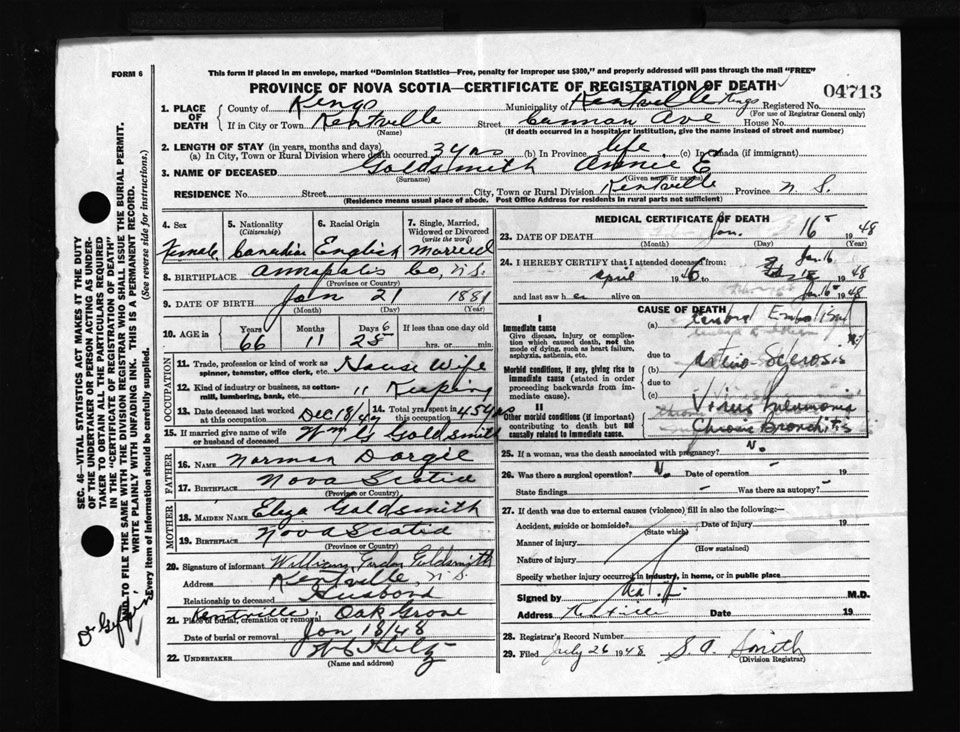 FORM 6
This form if placed in an envelope, marked "Dominion Statistics—Free, penalty for improper use $300," and properly addressed will pass through the mail "FREE"
PROVINCE OF NOVA SCOTIA—CERTIFICATE OF REGISTRATION OF DEATH
04713
1. PLACE OF DEATH
County of Kings Municipality of Kentville Kings Registered No.
(For use of Registrar General only)
If in City or Town Kentville Street Ave House No.
(Name) (If death occurred in a hospital or institution, give the name instead of street and number)
2. LENGTH OF STAY (in years, months and days)
(a) In City, Town or Rural Division where death occurred 34 yrs (b) In Province life (c) In Canada (if immigrant)
3. NAME OF DECEASED Goldsmith Annie E
(Surname) (Given name or names)
RESIDENCE No. Street City, Town or Rural Division Kentville Province N. S.
(Residence means usual place of abode. Post Office Address for residents in rural parts not sufficient)
4. Sex 5. Nationality (Citizenship) 6. Racial Origin 7. Single, Married, Widowed or Divorced (write the word)
Female Canadian English Married
8. BIRTHPLACE Annapolis Co, N.S.
(Province or Country)
9. DATE OF BIRTH Jan 21 1881
(Month) (Day) (Year)
10. AGE in Years Months Days If less than one day old
66 11 hrs. or min.
OCCUPATION
11. Trade, profession or kind of work as spinner, teamster, office clerk, etc. House Wife
12. Kind of industry or business, as cotton-mill, lumbering, bank, etc. " Keeping
13. Date deceased last worked at this occupation Dec 18/47 14. Total yrs spent in this occupation 45 yrs
15. If married give name of wife or husband of deceased Wm G Goldsmith
FATHER
16. NAME Norman Dargie
17. BIRTHPLACE Nova Scotia
(Province or Country)
MOTHER
18. MAIDEN NAME Eliza Goldsmith
19. BIRTHPLACE Nova Scotia
(Province or Country)
20. Signature of informant William Gordon Goldsmith
Address Kentville, N. S.
Relationship to deceased Husband
21. Place of burial, cremation or removal Kentville, Oak Grove
Date of burial or removal Jan 18/48
22. UNDERTAKER
(Name and address)
MEDICAL CERTIFICATE OF DEATH
23. DATE OF DEATH Jan. 16 1948
(Month) (Day) (Year)
24. I HEREBY CERTIFY that I attended deceased from:
April 19 Jan. 16 1948
and last saw her alive on Jan. 16 1948
CAUSE OF DEATH
I
Immediate cause
Give disease, injury or complication which caused death, not the mode of dying, such as heart failure, asphyxia, asthenia, etc.
(a) Cerebral Embolism
due to
Morbid conditions, if any, giving rise to immediate cause (stated in order proceeding backwards from immediate cause).
(b) Arterio Sclerosis
due to
(c) Virus Pneumonia
II
Other morbid conditions (if important) contributing to death but not causally related to immediate cause.
Chronic Bronchitis
25. If a woman, was the death associated with pregnancy? No
26. Was there a surgical operation? No Date of operation - 19
State findings - Was there an autopsy? -
27. If death was due to external causes (violence) fill in also the following:—
Accident, suicide or homicide? Date of injury 19
(State which)
Manner of injury
(How sustained)
Nature of injury
Specify whether injury occurred in industry, in home, or in public place
Signed by M.D.
Address Date 19
28. Registrar's Record Number
29. Filed July 26 1948 S. A. Smith
(Division Registrar)
SEC. 46—VITAL STATISTICS ACT MAKES IT THE DUTY OF THE UNDERTAKER OR PERSON ACTING AS UNDERTAKER TO OBTAIN ALL THE PARTICULARS REQUIRED IN THE "CERTIFICATE OF REGISTRATION OF DEATH" AND TO FILE THE SAME WITH THE DIVISION REGISTRAR WHO SHALL ISSUE THE BURIAL PERMIT.
WRITE PLAINLY WITH UNFADING INK. THIS IS A PERMANENT RECORD.
Every item of information should be carefully supplied. (See reverse side for instructions.)
Dr